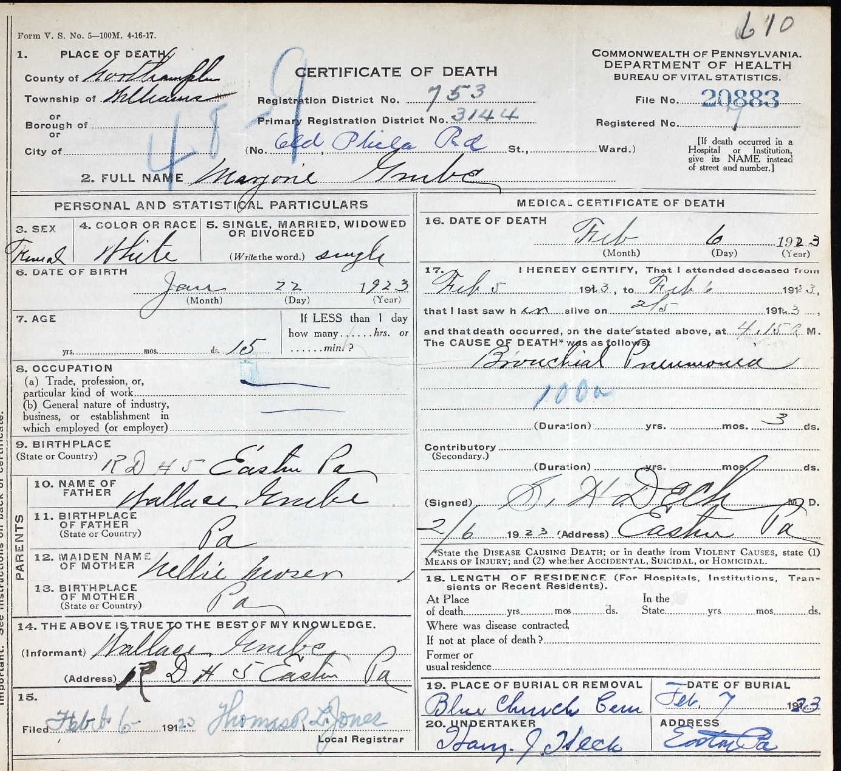 610
Form V. S. No. 5—100M. 4-16-17.
1. PLACE OF DEATH
County of Northampton
Township of Williams
or
Borough of
or
City of
48-9
CERTIFICATE OF DEATH
Registration District No. 753
Primary Registration District No. 3144
(No. Old Phila Rd St., Ward.)
COMMONWEALTH OF PENNSYLVANIA.
DEPARTMENT OF HEALTH
BUREAU OF VITAL STATISTICS.
File No. 20883
Registered No. 7
[If death occurred in a
Hospital or Institution,
give its NAME instead
of street and number.]
2. FULL NAME Marjorie Grube
PERSONAL AND STATISTICAL PARTICULARS
3. SEX
Femal
4. COLOR OR RACE
White
5. SINGLE, MARRIED, WIDOWED
OR DIVORCED
(Write the word.) single
6. DATE OF BIRTH
Jan 22 1923
(Month) (Day) (Year)
7. AGE
yrs. mos. ds. 15
If LESS than 1 day
how many......hrs. or
......min.?
8. OCCUPATION
(a) Trade, profession, or,
particular kind of work
(b) General nature of industry,
business, or establishment in
which employed (or employer)
9. BIRTHPLACE
(State or Country) R D # 5 Easton Pa
PARENTS
10. NAME OF
FATHER Wallace Grube
11. BIRTHPLACE
OF FATHER
(State or Country) Pa
12. MAIDEN NAME
OF MOTHER Nellie Moser
13. BIRTHPLACE
OF MOTHER
(State or Country) Pa
14. THE ABOVE IS TRUE TO THE BEST OF MY KNOWLEDGE.
(Informant) Wallace Grube
(Address) R D # 5 Easton Pa
15.
Filed Feb 6 1923 Thomas R. L. Jones
Local Registrar
MEDICAL CERTIFICATE OF DEATH
16. DATE OF DEATH
Feb 6 1923
(Month) (Day) (Year)
17. I HEREBY CERTIFY, That I attended deceased from
Feb 5 1923, to Feb 6 1923,
that I last saw h er alive on 2/5 1923,
and that death occurred, on the date stated above, at 4.15 a M.
The CAUSE OF DEATH* was as follows:
Bronchial Pneumonia
100a
(Duration) yrs. mos. 3 ds.
Contributory
(Secondary.)
(Duration) yrs. mos. ds.
(Signed) S. H. Dech M. D.
2/6 1923 (Address) Easton Pa
*State the DISEASE CAUSING DEATH; or in deaths from VIOLENT CAUSES, state (1)
MEANS OF INJURY; and (2) whether ACCIDENTAL, SUICIDAL, or HOMICIDAL.
18. LENGTH OF RESIDENCE (For Hospitals, Institutions, Tran-
sients or Recent Residents).
At Place In the
of death......yrs......mos......ds. State......yrs......mos......ds.
Where was disease contracted,
If not at place of death?
Former or
usual residence
19. PLACE OF BURIAL OR REMOVAL
Blue Church Cem
DATE OF BURIAL
Feb. 7 1923
20. UNDERTAKER
Harry J Heck
ADDRESS
Easton Pa